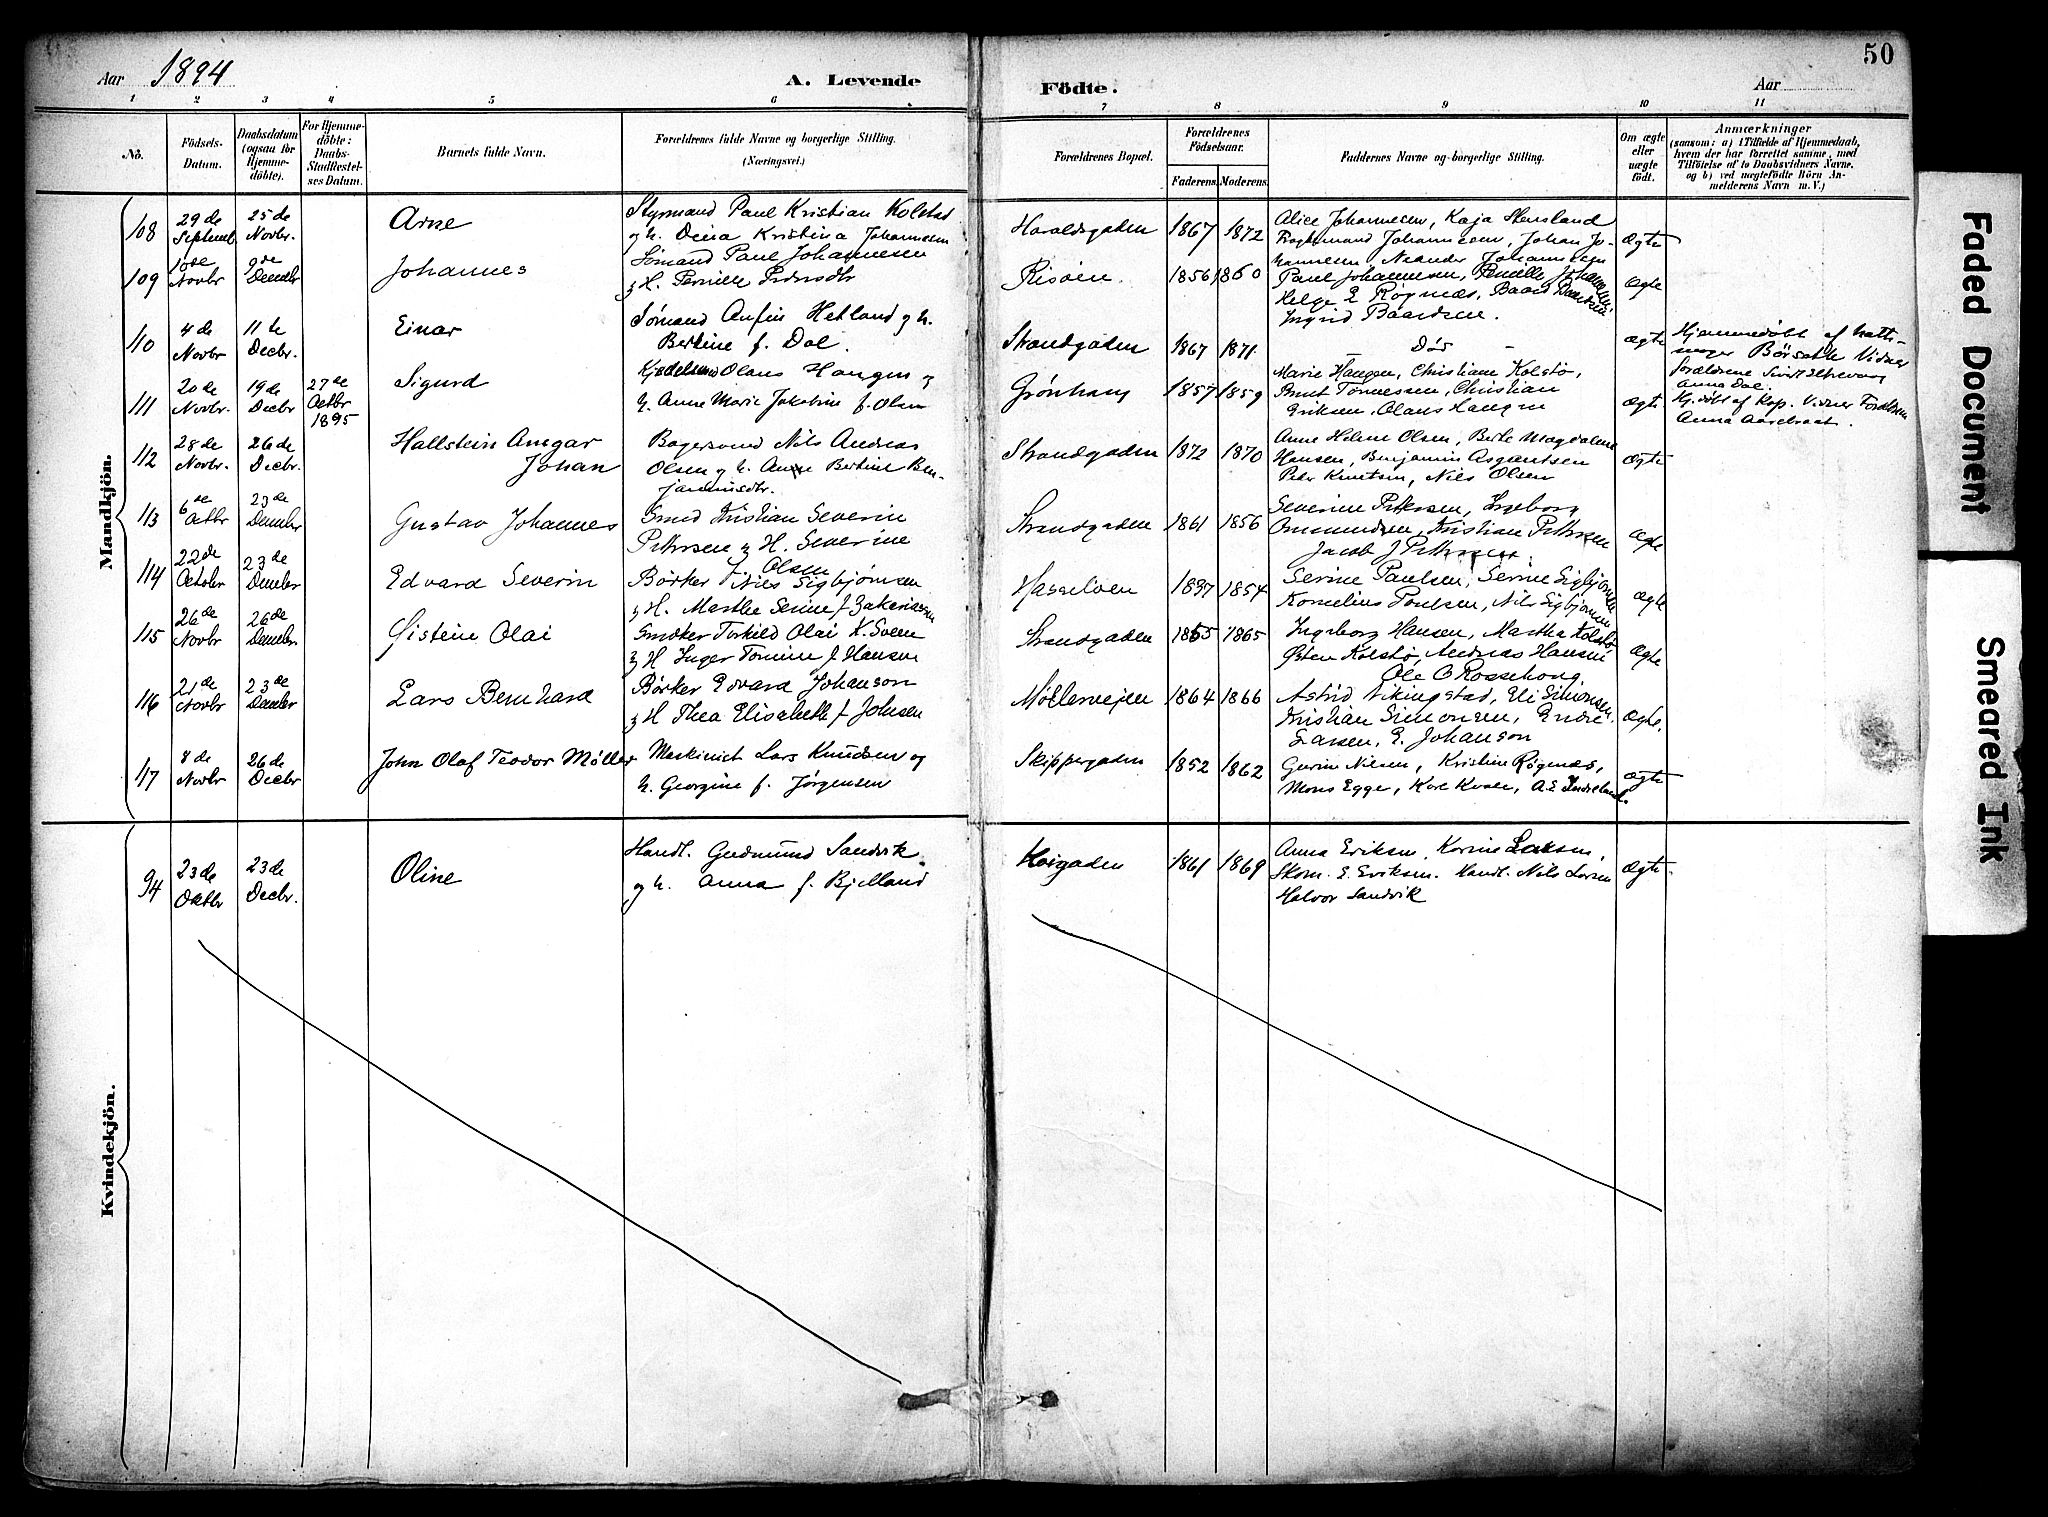 50
Aar 1894
A. Levende
Födte.
Aar
1 2 3 4 5 6 7 8 9 10 11
No.
Födsels-Datum.
Daabsdatum (ogsaa for Hjemme-döbte).
For Hjemme-döbte: Daabs-Stadfæstel-ses Datum.
Barnets fulde Navn.
Forældrenes fulde Navne og borgerlige Stilling. (Næringsvei.)
Forældrenes Bopæl.
Forældrenes Födselsaar.
Faderens. Moderens.
Faddernes Navne og borgerlige Stilling.
Om ægte eller uægte födt.
Anmærkninger
(saasom: a) i Tilfælde af Hjemmedaab,
hvem der har forrettet samme, med
Tilföielse af to Daabsvidners Navne.
og b) ved uægtefödte Börn An-
melderens Navn m. V.)
Mandkjön.
108 29de Septemb. 25de Novbr. Arne
Styrmand Paul Kristian Kolstad
og h. Dina Kristina Johannesen
Haraldsgaden 1867 1872
Alice Johannesen, Kaja Stensland
Johannesen, Johan Jo-
hannesen Neander Johannesen
Ægte
109 10de Novbr 9de Decembr Johannes
Sömand Paul Johannesen
& H. Pernille Pedersdtr
Risöen. 1856 1860
Paul Johannesen, Pernille Johannesen
Helge E Røgnæs, Baard Baardsen
Ingrid Baardsen.
Ægte
110 4de Novbr 11te Decbr. Einar
Sømand Anfin Hetland og h.
Bertine f. Dal.
Strandgaden 1867 1871.
Døs
ægte
Hjemmedöbt af
Börsett Vidner
forældrene
Anna Dal.
111 20de Novbr. 19de Decbr 27de Octbr 1895 Sigurd
Kjedelsmed Olaus Haugen og
h. Anne Marie Jakobine f. Olsen
Grønhaug 1857 1859
Marie Haugen, Christiane Kolstö,
Bernt Tønnessen, Christian
Eriksen, Olaus Haugen
Ægte
Hj. döbt af Kap. Vidner Forældrene
Anna
112 28de Novbr. 26de Decbr. Hallstein Ansgar
Johan
Bagersvend Nils Andreas
Olsen og h. Anne Bertine Ben-
jaminsdtr.
Strandgaden 1872 1870
Anne Helene Olsen, Berte Magdalene
Hansen, Benjamin Asgautsen
Peder Knutsen, Nils Olsen
Ægte
113 6de Octbr 23de Decembr Gustav Johannes
Smed Kristian Severin
Pettersen & H. Severine
f. Olsen
Strandgaden 1861 1856
Severine Pettersen, Ingeborg
Omundsen, Kristian Pettersen
Jacob J Pettersen.
Ægte
114 22de Octobr 23de Decembr Edvard Severin
Børker Nils Sigbjørnsen
& H. Marthe Serine f Zakariassen
Hasseløen 1854
Serine Paulsen, Serine Sigbjørnsen
Kornelius Poulsen, Nils Sigbjørnsen
Ægte
115 26de Novbr 26de Decembr Øistein Olai
Smöker Torkild Olai K. Sveen
& H Inger Tomine f Hansen
Strandgaden 1855 1865
Ingeborg Hansen, Martha Kolstö
Østen Kolstø, Andreas Hansen
Ole O Rossehaug.
Ægte
116 21de Novbr 23de Decembr Lars Bernhard
Børker Edvard Johanson
& H Thea Elisabeth f Johnsen
Møllervejen 1864 1866
Astrid Vikingstad, Eli Simonsen,
Kristian Simonsen, Endre
Larsen, E. Johanson
Ægte.
117 8de Novbr 26de Decbr John Olaf Teodor Møller
Maskinist Lars Knudsen og
h. Georgine f. Jørgensen
Skippergaden 1852 1862
Gurine Nilsen, Kristine Røgenæs,
Mons Egge, A. E.
Ægte
Kvindekjön.
94 23de Oktbr 23de Decbr. Oline
Handl. Gudmund Sandvik
og h. Anna f. Bjelland
Høigaden 1861 1869
Anna Eriksen, Karine Larsen,
Skom. E. Eriksen. Handl. Nils Larsen
Halvor Sandvik
Ægte.
Faded Document
Smeared Ink